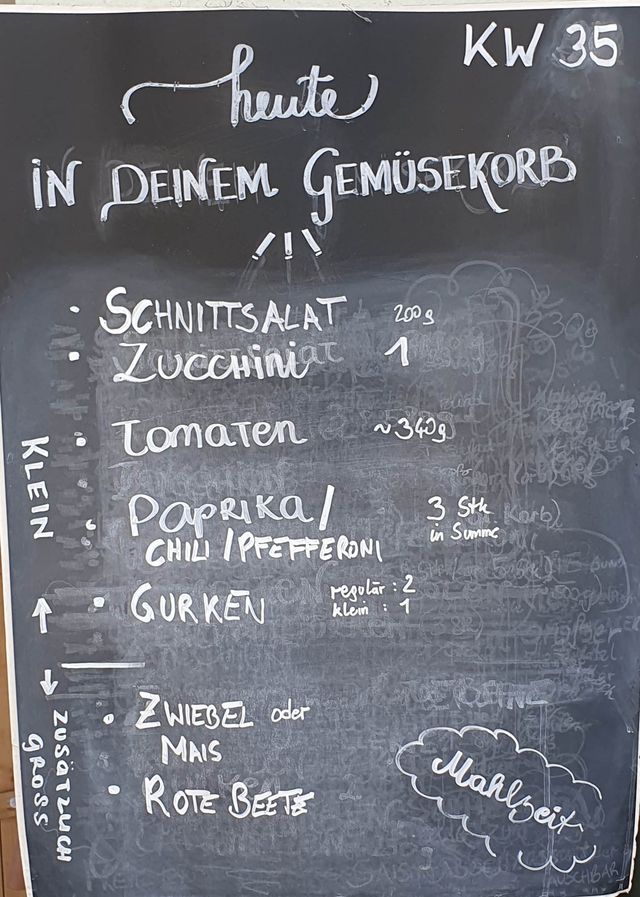 KW 35
heute
IN DEINEM GEMÜSEKORB
• SCHNITTSALAT 200g
• ZUCCHINI 1
• TOMATEN ~340g
• PAPRIKA/ 3 Stk
CHILI/PFEFFERONI in Summe
• GURKEN regulär: 2
klein: 1
KLEIN ←
→ ZUSÄTZLICH
GROSS
• ZWIEBEL oder
MAIS
• ROTE BEETE
Mahlzeit